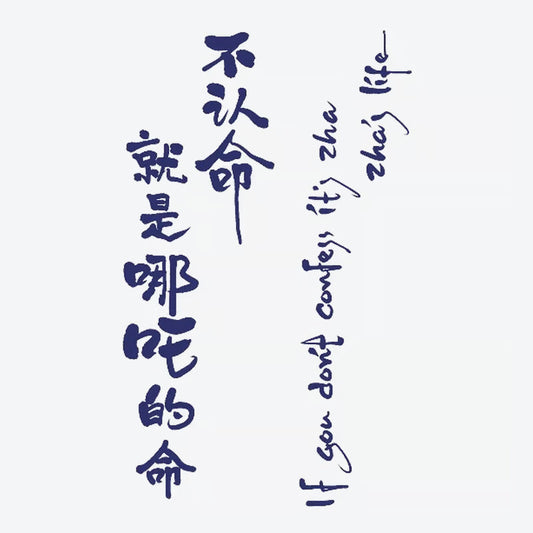 不认命
就是哪吒的命
If you don't confess it's zha
zha's life